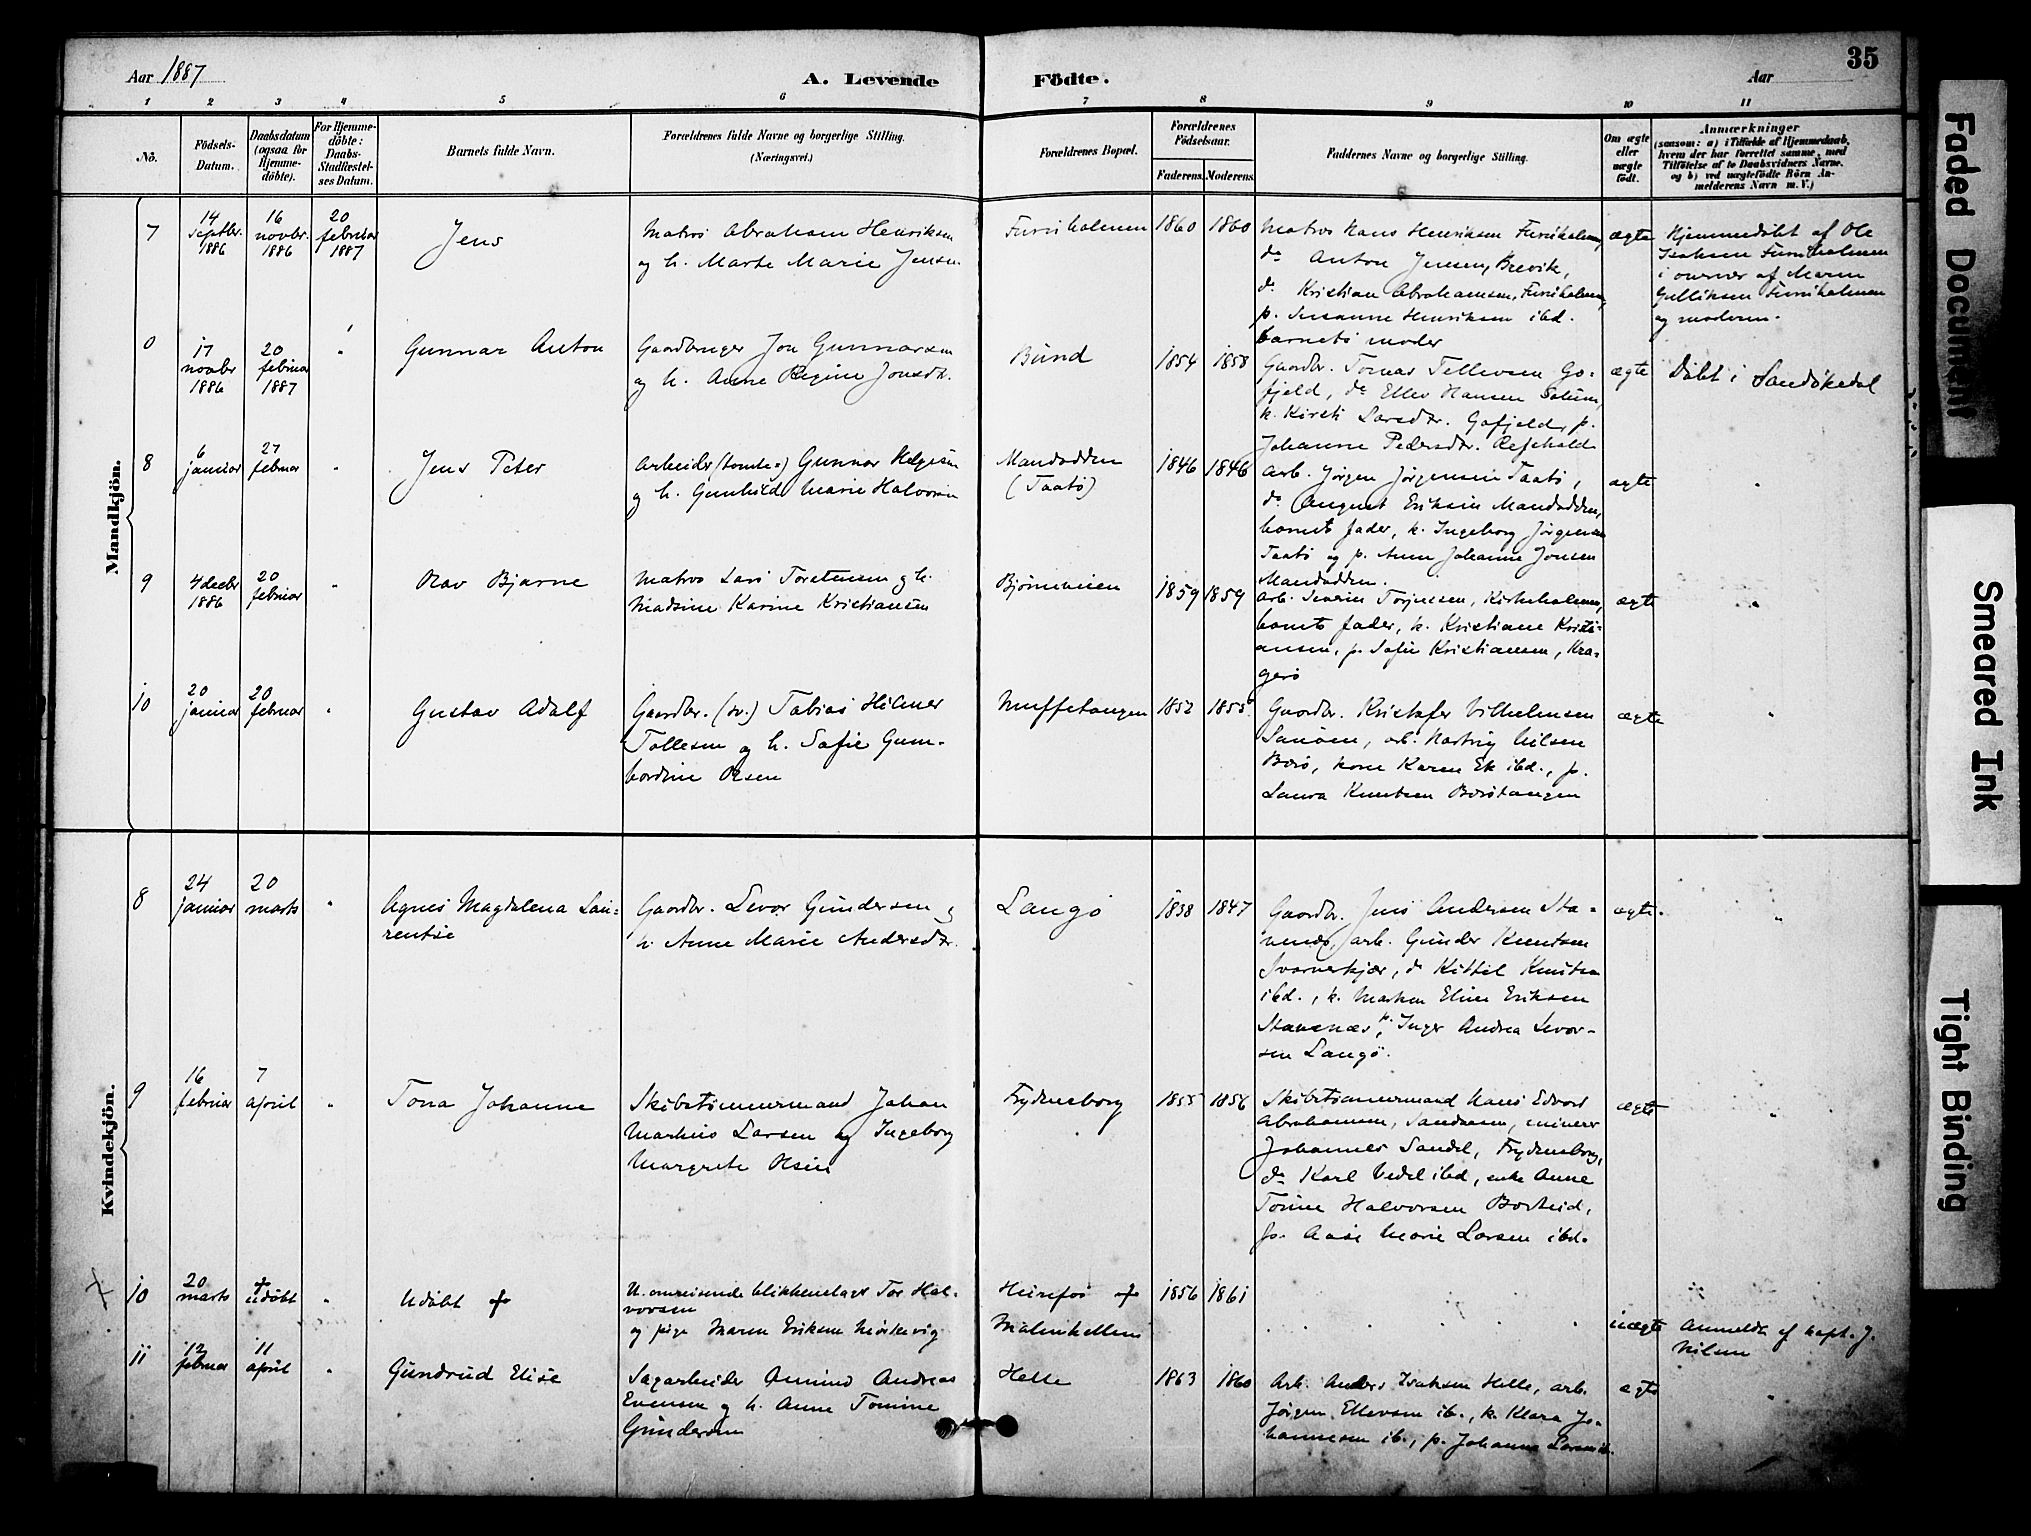 Aar 1887
A. Levende
Födte.
Aar
35
1 2 3 4 5 6 7 8 9 10 11
No.
Födsels-
Datum.
Daabsdatum
(ogsaa for
Hjemme-
döbte).
For Hjemme-
döbte:
Daabs-
Stadfæstel-
ses Datum.
Barnets fulde Navn.
Forældrenes fulde Navne og borgerlige Stilling.
(Næringsvei.)
Forældrenes Bopæl.
Forældrenes
Födselsaar.
Faderens. Moderens.
Faddernes Navne og borgerlige Stilling.
Om ægte
eller
uægte
födt.
Anmærkninger
(saasom: a) i Tilfælde af Hjemmedaab,
hvem der har forrettet samme, med
Tilföielse af to Daabsvidners Navne,
og b) ved uægtefödte Börn An-
melderens Navn m. V.)
Mandkjön.
7
14
Septbr.
1886
16
novbr.
1886
20
februar
1887
Jens
Matros Abraham Henriksen
og h. Marte Marie Jensen
Furuholmen
1860
1860
Matros Hans Henriksen Furuholmen,
do Anton Jensen, Brevik,
do Kristian Abrahamsen, Furuholmen,
p. Susanne Henriksen ibd.
barnets moder
ægte
Hjemmedøbt af Ole
Isaksen Furuholmen
i overvær af Maren
Gulliksen Furuholmen
og moderen.
0
17
novbr
1886
20
februar
1887
"
Gunnar Anton
Gaardbruger Jon Gunnarsen
og h. Anne Regine Jonsdtr.
Bund
1854
1858
Gaardbr. Tomas Tellevsen Go-
fjeld, do Ellev Hansen Solum,
k. Kirsti Larsdtr. Gofjeld, p.
Johanne Pedersdtr.
ægte
Døbt i Sandøkedal
8
6
januar
27
februar
"
Jens Peter
Arbeider (tomte=) Gunnar Helgesen
og h. Gunhild Marie Halvorsen
(Taatø)
1846
1846
Arb. Jørgen Jørgensen Taatø,
do August Eriksen
barnets fader, k. Ingeborg Jørgensen
Taatø og p. Anne Johanne Jonsen
ægte
"
9
4 decbr
1886
20
februar
"
Olav Bjarne
Matros Lars Torstensen og h.
Madsine Karine Kristiansen
1859
1859
Arb. Severin Torjussen, Kirkeholmen,
barnets fader, k. Kristiane Kristi-
ansen, p. Sofie Kristiansen, Kra-
gerø
ægte
"
10
20
januar
20
februar
"
Gustav Adolf
Gaardbr. (sv.) Tobias Hilmer
Tollesen og h. Sofie Gum-
bordine Olsen
Muffetangen
1852
1855
Gaardbr. Kristofer Vilhelmsen
arb. Hartvig Nilsen
Berø, kone Karen Ek ibd., p.
Laura Knutsen Berøtangen
ægte
"
Kvindekjön.
8
24
januar
20
marts
"
Agnes Magdalena Lau-
rentse
Gaardbr. Levor Gundersen og
h. Anne Marie Andersdtr.
Langø
1838
1847
Gaardbr. Jens Andersen Sta-
venæs, arb. Gunder Knutsen
do Kittil Knutsen
ibd., k. Maren Eline Eriksen
Stavenæs, p. Inger Andrea Levor-
sen Langø.
ægte
"
9
16
februar
7
april
"
Tona Johanne
Skibstømmermand Johan
Markus Larsen og Ingeborg
Margrete Olsen
Frydensborg
1855
1856
Skibstømmermand Hans Edvard
Abrahamsen, minerer
Johannes Sandel, Frydensborg,
do Karl Vedel ibd, enke Anne
Tomine Halvorsen
p. Aase Marie Larsen ibd.
ægte
"
10
20
marts
†
udøbt
"
Udøbt †
U. omreisende blikkenslager Tor Hal-
vorsen
og pige Maren Eriksen
1856
1861
uægte
Anmeldt af kapt. J.
Nilsen
11
12
februar
11
april
"
Gundrud Elise
Sagarbeider Amund Andreas
Evensen og h. Anne Tomine
Gundersen
Helle
1863
1860
Arb. Anders Isaksen Helle, arb.
Jørgen Ellevsen ib., k. Klara Jo-
hannesen ib., p. Johanne Larsen ib.
ægte
"
Faded Document
Smeared Ink
Tight Binding